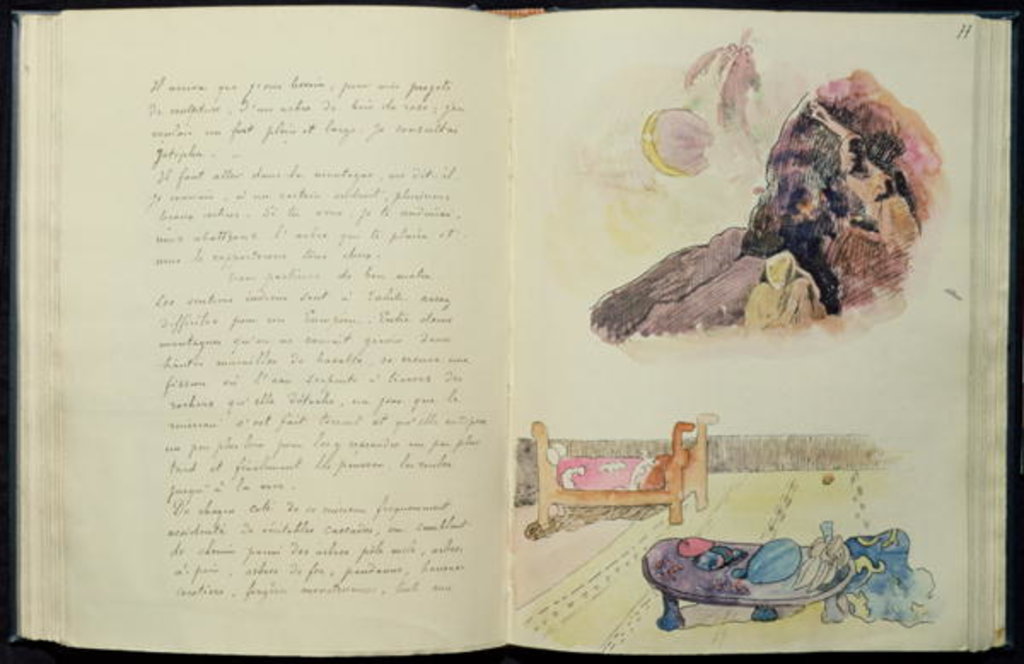 11
Il arriva que j'eus besoin, pour mes projets
de sculpture, d'un arbre de bois de rose; j'en
voulais un fort plein et large. Je consultai
Jotépha.
Il faut aller dans la montagne, me dit-il.
Je connais, à un certain endroit, plusieurs
beaux arbres. Si tu veux, je te conduirai,
nous abattrons l'arbre qui te plaira et
nous le rapporterons tous deux.
Nous partîmes de bon matin.
Les sentiers indiens sont à Tahiti assez
difficiles pour un Européen. Entre deux
montagnes qu'on ne saurait gravir deux
hautes murailles de basalte, se creuse une
fissure où l'eau serpente à travers des
rochers qu'elle détache, un jour que le
ruisseau s'est fait torrent et qu'elle
un peu plus loin pour les y reprendre un peu plus
tard et finalement les pousser, les rouler
jusqu'à la mer.
De chaque coté de ce ruisseau fréquemment
accidenté de véritables cascades, un semblant
de chemin parmi des arbres pêle mêle, arbres
à pain, arbres de fer, pandanus, bouraos
cocotiers, fougères monstrueuses, toute une